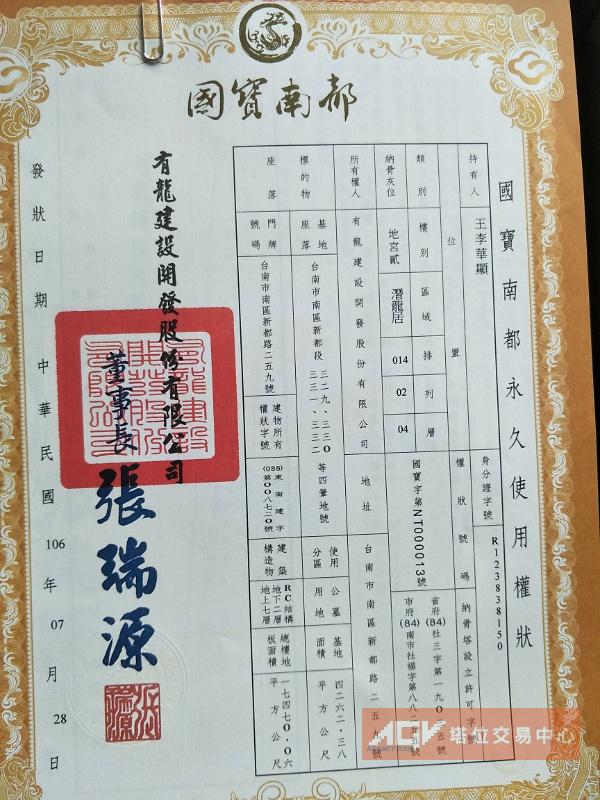 國寶南都
國寶南都永久使用權狀
持有人 王李華顯 身分證字號 R123838150
位置
類別 樓別 區域 排 列 層 權狀號碼 納骨塔設立許可字號
納骨灰位 地宮貳 潛龍居 014 02 04 國寶字第NT000013號
省府(84)社三字第一九0
五號
市府(84)南市社福字第八八二五五號
所有權人 有龍建設開發股份有限公司 地址 台南市南區新都路二五九號
標的物座落
基地座落 台南市南區新都段 三二九、三三0 三三一、三三二 等四筆地號 使用分區 公墓用地 基地面積 四二六二·三八平方公尺
門牌號碼 台南市南區新都路二五九號 建物所有權狀字號 (088)東南建字第00八七二0號 建築構造物 RC結構地下二層地上七層 總樓地板面積 一七四七0·0六平方公尺
有龍建設開發股份有限公司
董事長 張瑞源
發狀日期 中華民國 106 年 07 月 28 日
ACV 塔位交易中心